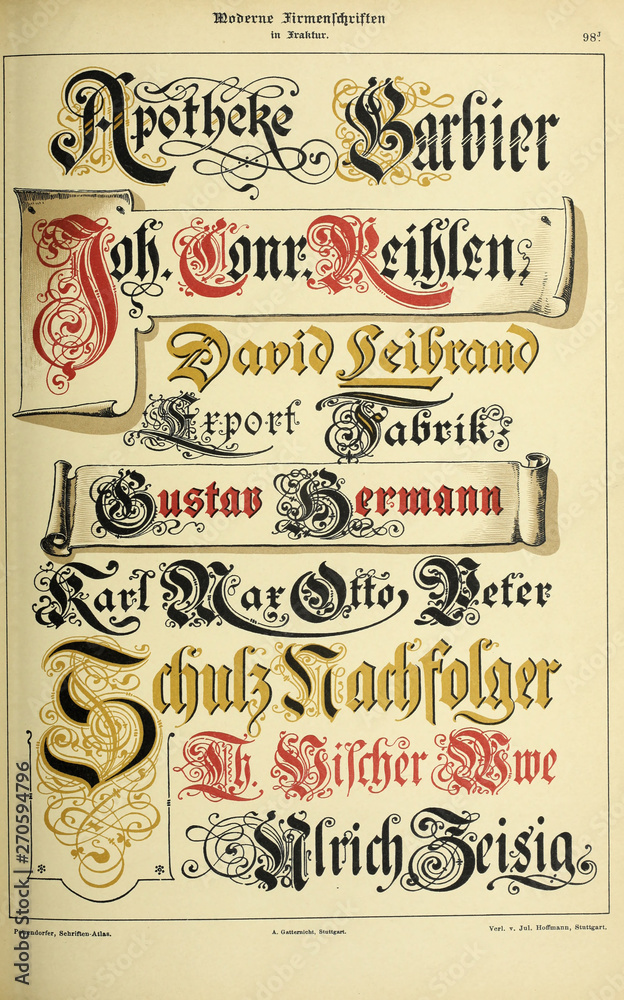 Moderne Firmenschriften
in Fraktur.
98d.
Apotheke Barbier
Joh. Conr. Reihlen.
David Leibrand
Export Fabrik
Gustav Hermann
Karl Max Otto, Peter
Schulz Nachfolger
Th. Vischer Wwe
Ulrich Zeisig.
Petzendorfer, Schriften-Atlas.
A. Gatternicht, Stuttgart.
Verl. v. Jul. Hoffmann, Stuttgart.
Adobe Stock | #270594796